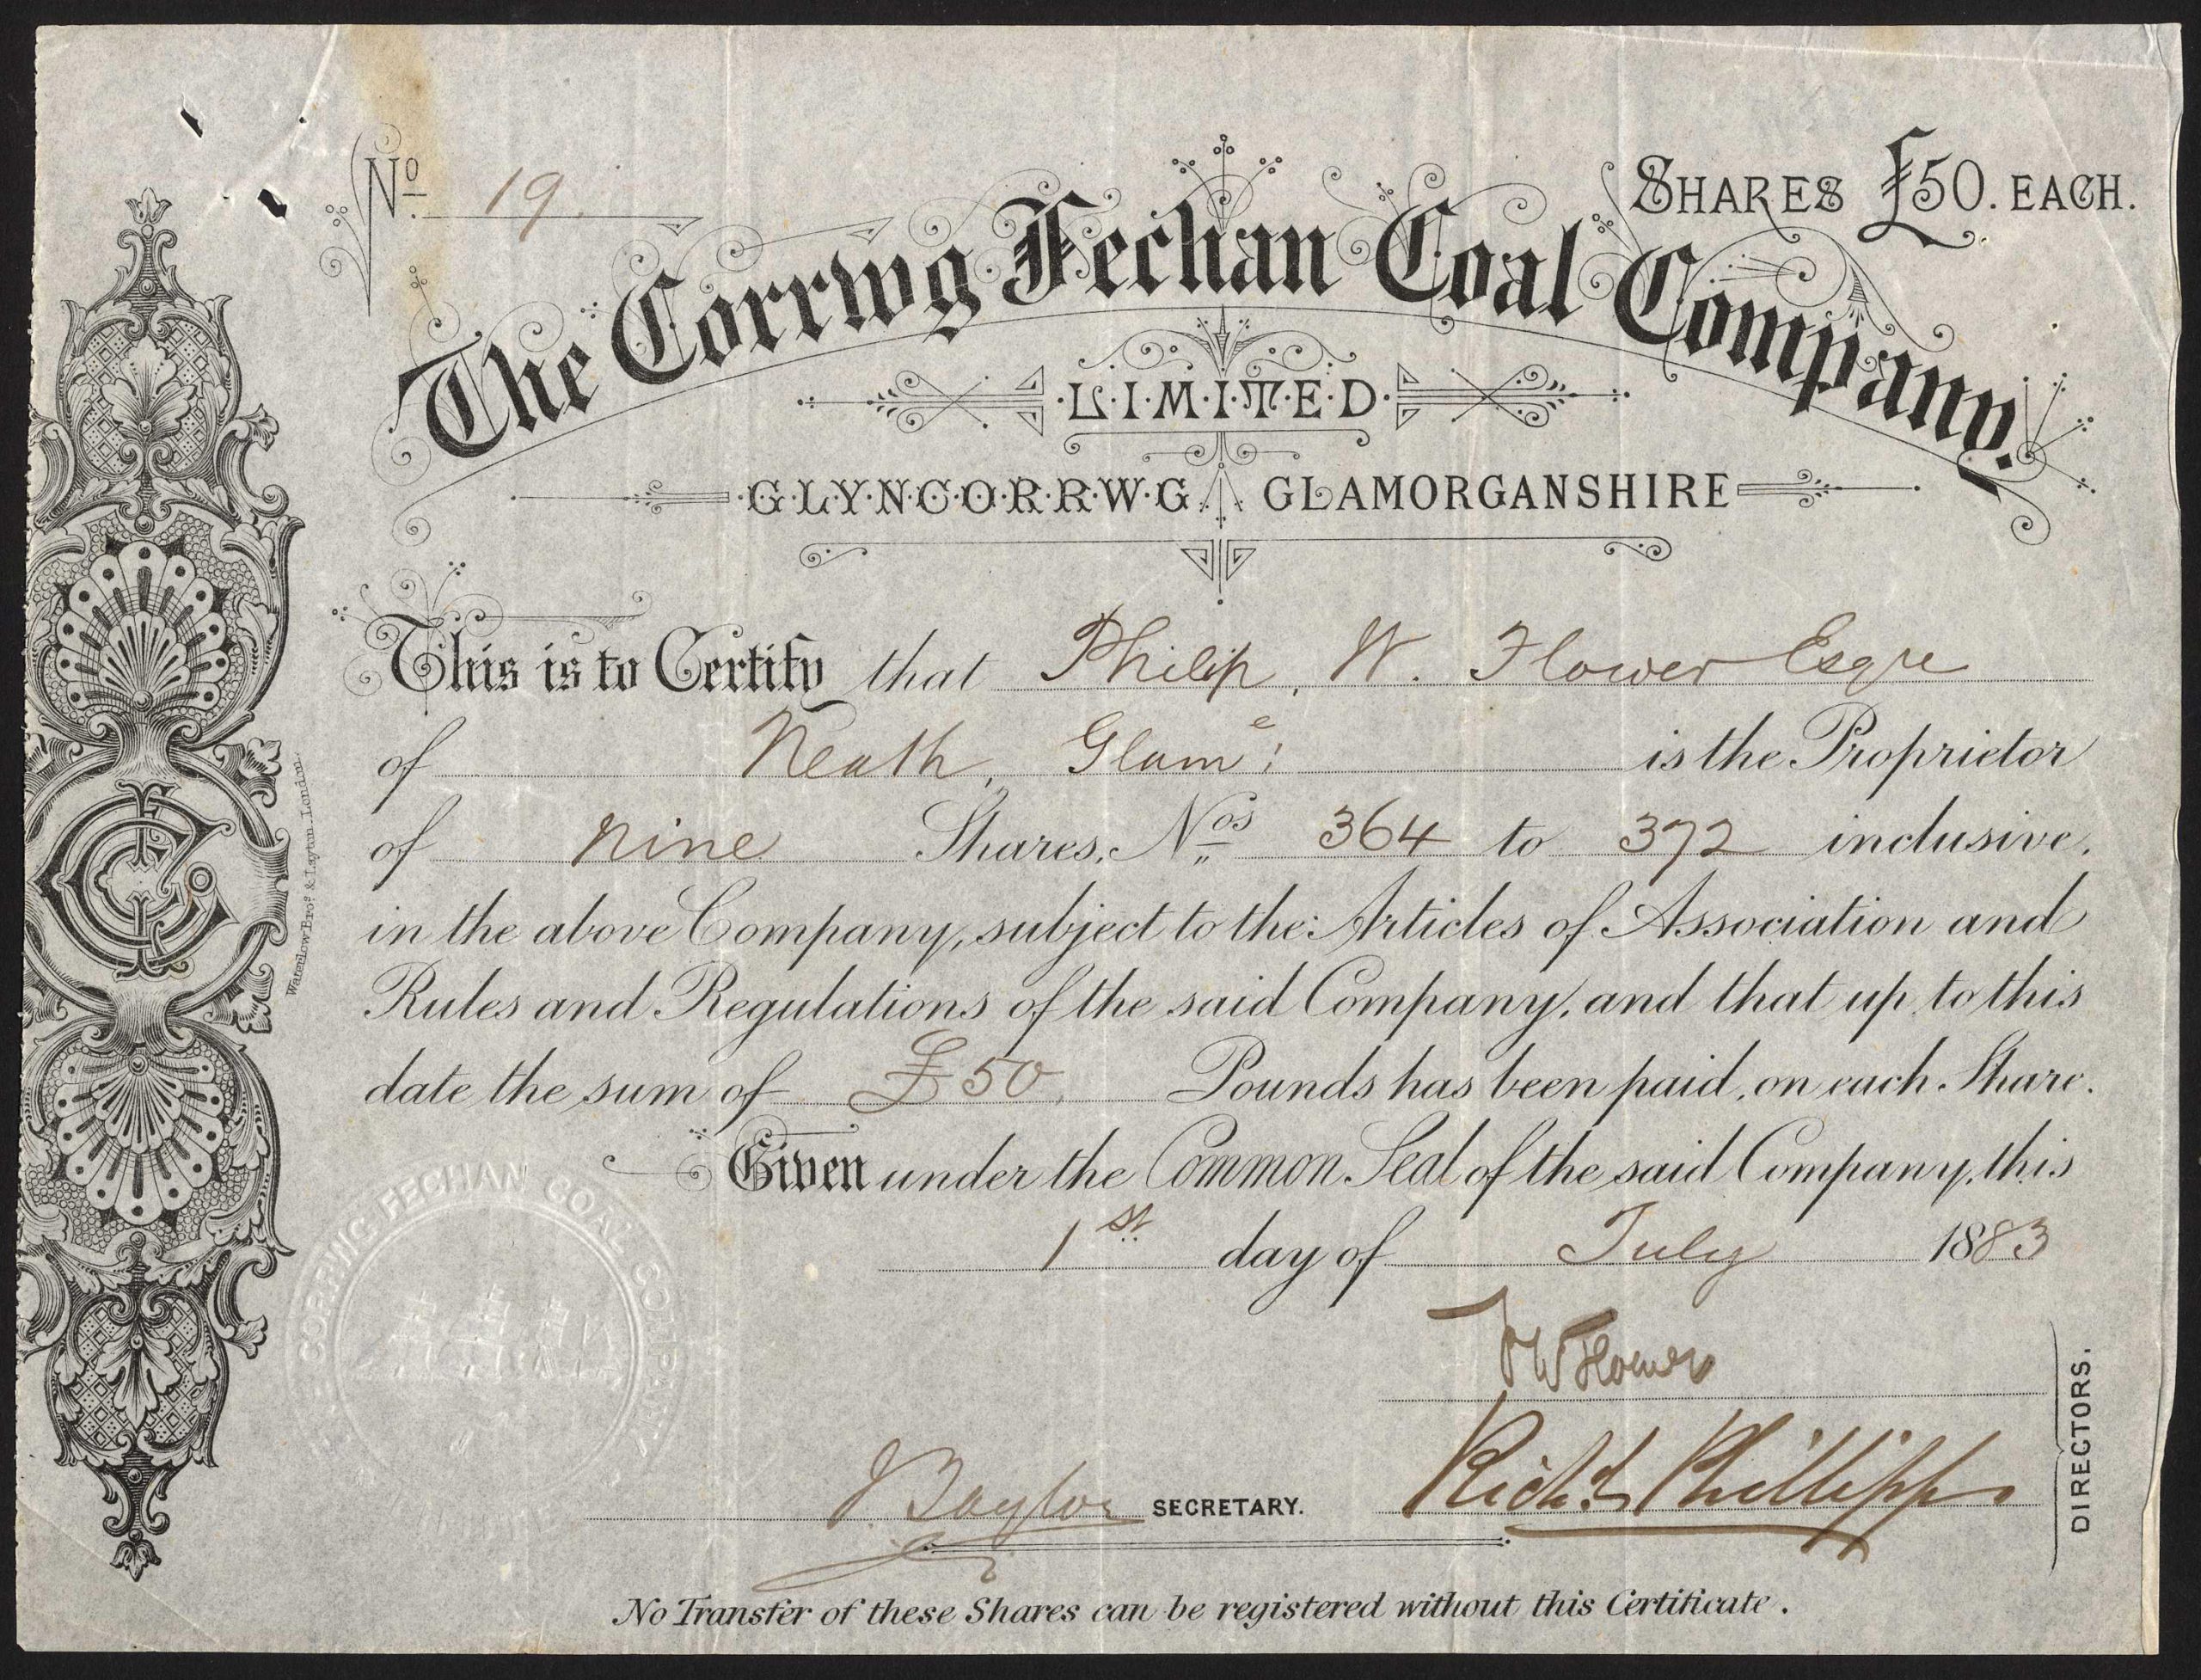 No. 19.
SHARES £50. EACH.
The Corrwg Fechan Coal Company.
LIMITED
GLYNCORRWG GLAMORGANSHIRE
This is to Certify that Philip. W. Flower Esqre
of Neath, Glam.e is the Proprietor
of nine Shares, Nos 364 to 372 inclusive.
in the above Company, subject to the Articles of Association and
Rules and Regulations of the said Company, and that up to this
date the sum of £50. Pounds has been paid, on each Share.
Given under the Common Seal of the said Company, this
1st day of July 1883
Flower
Richd Phillipps
DIRECTORS.
J. Taylor SECRETARY.
No Transfer of these Shares can be registered without this Certificate.
Waterlow Bros. & Layton. London.
CORRWG FECHAN COAL COMPANY